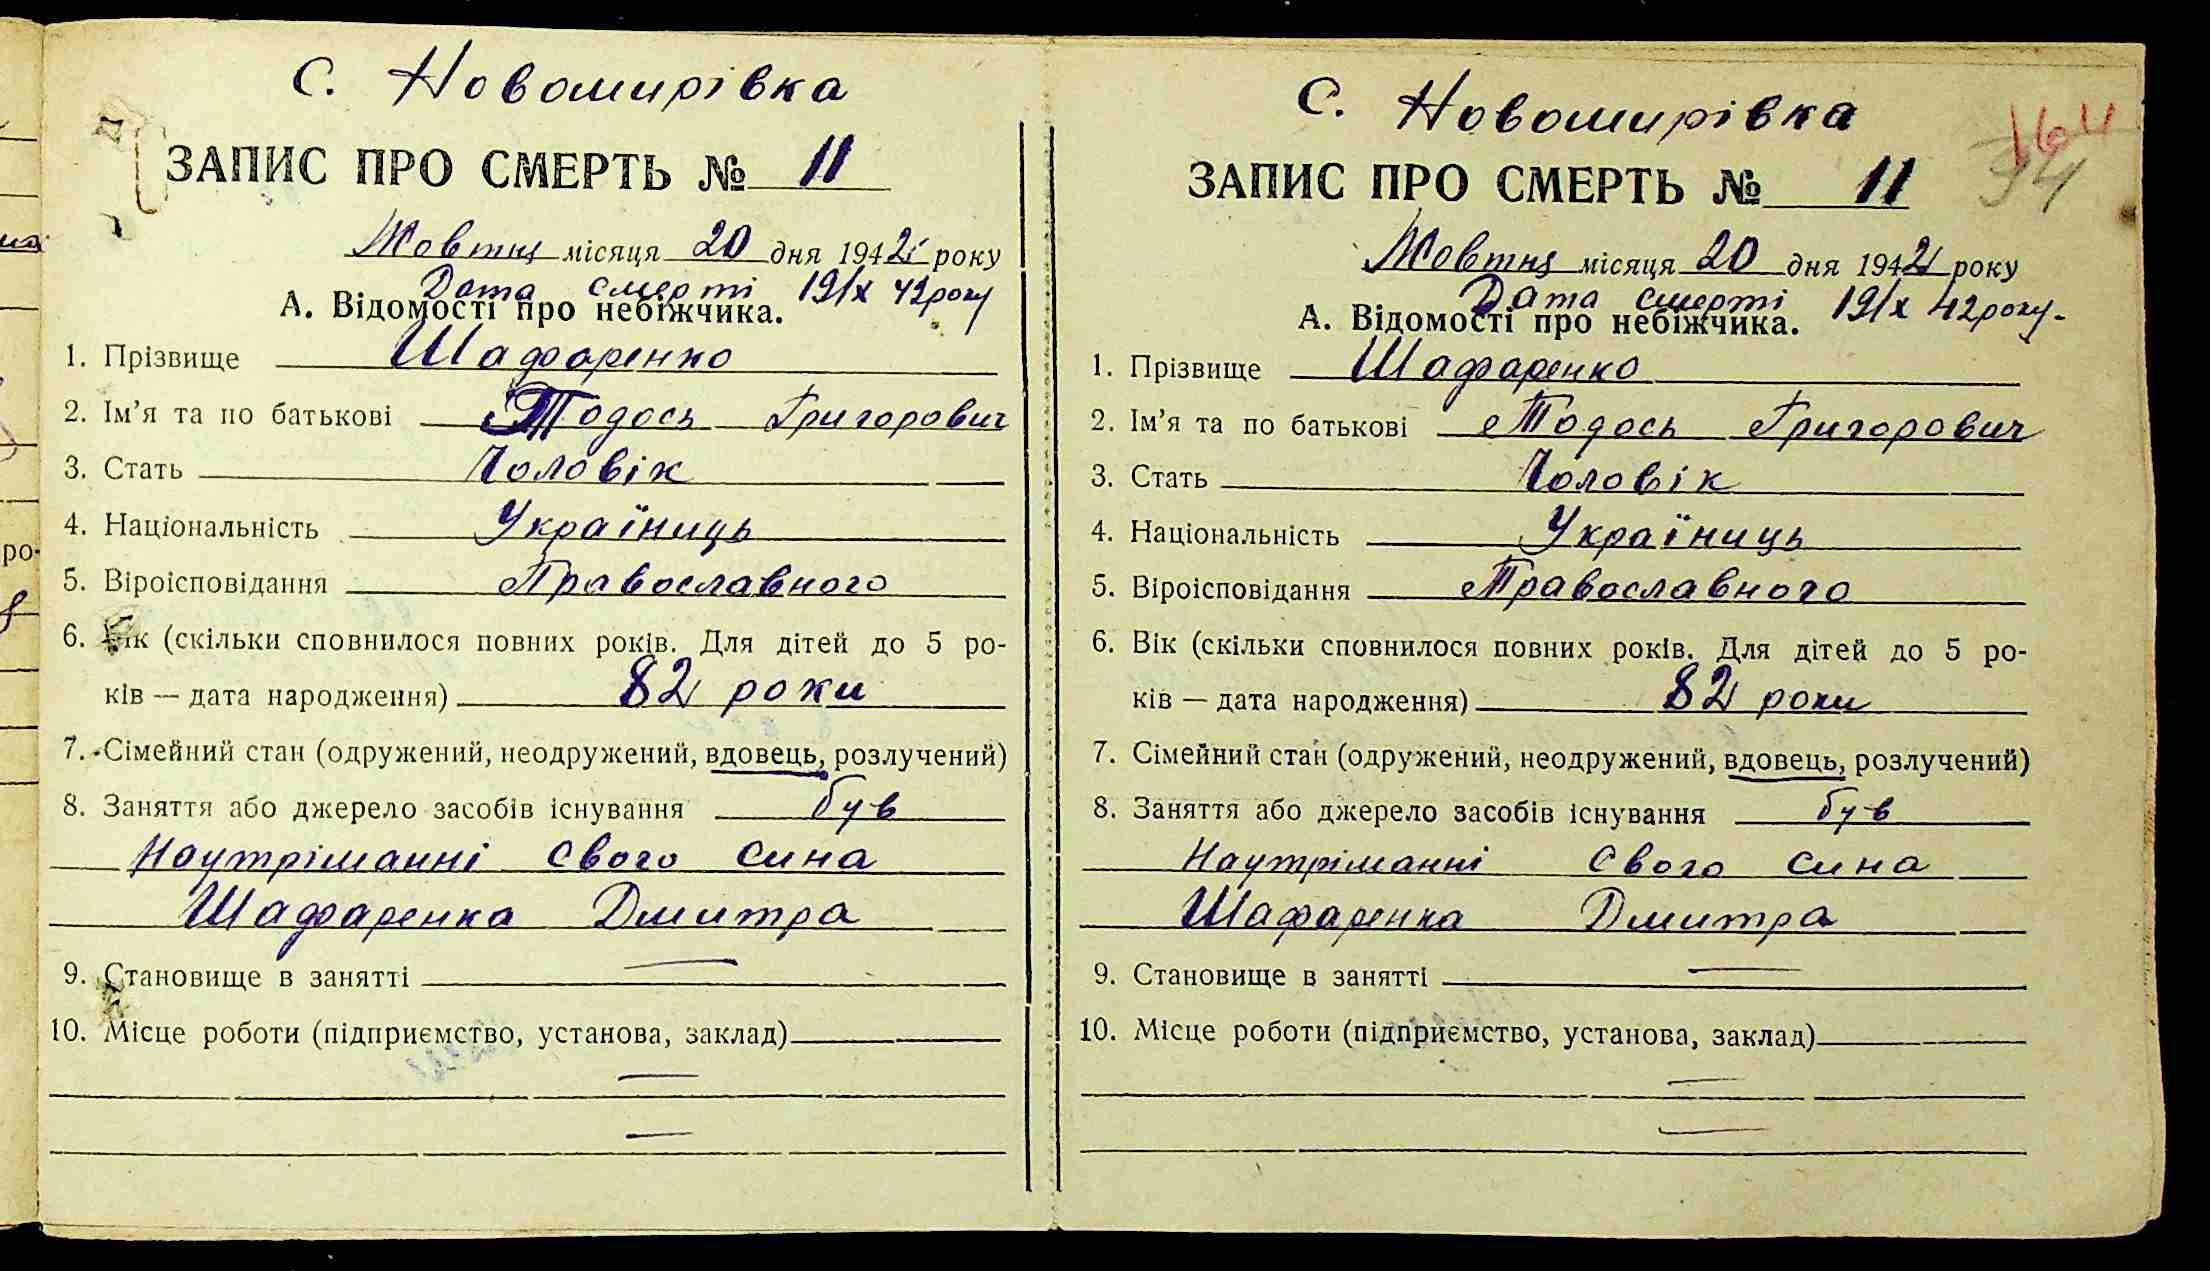 с. Новомирівка
ЗАПИС ПРО СМЕРТЬ № 11
Жовтня місяця 20 дня 1942 року
Дата смерті 19/х 42 року
А. Відомості про небіжчика.
1. Прізвище Шафаренко
2. Ім'я та по батькові Тодось Григорович
3. Стать Чоловік
4. Національність Україниць
5. Віроісповідання Православного
6. Вік (скільки сповнилося повних років. Для дітей до 5 ро-
ків — дата народження) 82 роки
7. Сімейний стан (одружений, неодружений, вдовець, розлучений)
8. Заняття або джерело засобів існування був
Наутріманні свого сина
Шафаренка Дмитра
9. Становище в занятті —
10. Місце роботи (підприємство, установа, заклад)
—
—
с. Новомирівка
164
34
ЗАПИС ПРО СМЕРТЬ № 11
Жовтня місяця 20 дня 1942 року
Дата смерті 19/х 42 року.
А. Відомості про небіжчика.
1. Прізвище Шафаренко
2. Ім'я та по батькові Тодось Григорович
3. Стать Чоловік
4. Національність Україниць
5. Віроісповідання Православного
6. Вік (скільки сповнилося повних років. Для дітей до 5 ро-
ків — дата народження) 82 роки
7. Сімейний стан (одружений, неодружений, вдовець, розлучений)
8. Заняття або джерело засобів існування був
Наутріманні свого сина
Шафаренка Дмитра
9. Становище в занятті —
10. Місце роботи (підприємство, установа, заклад)
—
—